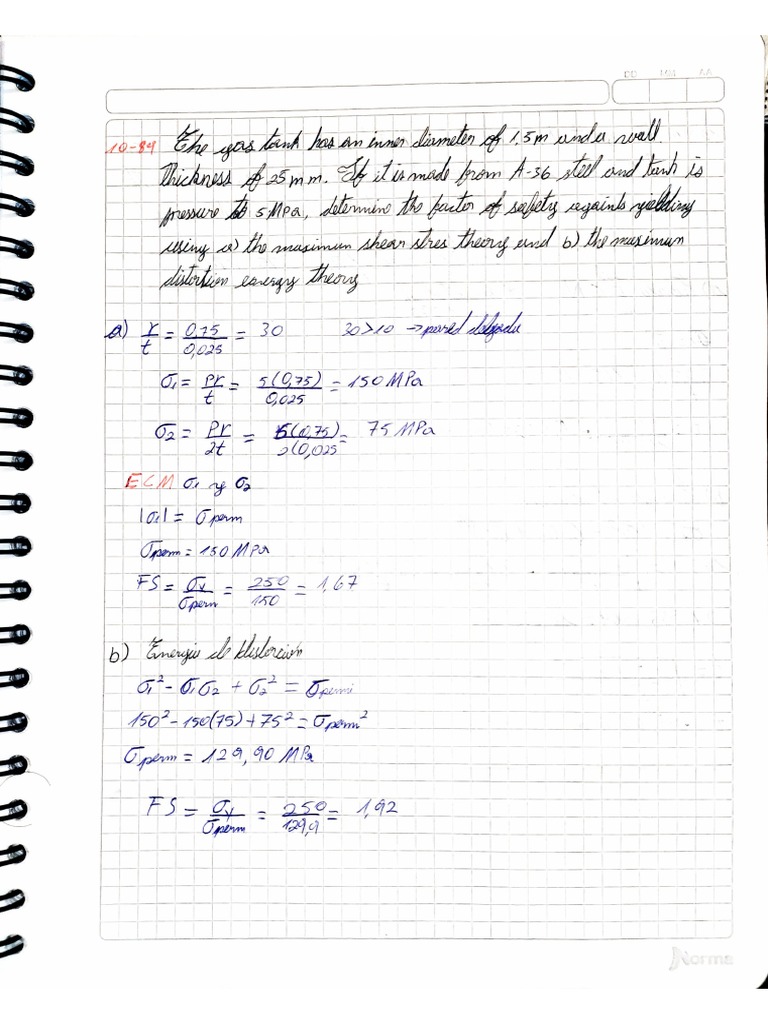 DD MM AA
10-89 The gas tank has an inner diameter of 1.5m and a wall
thickness of 25mm. If it is made from A-36 steel and tank is
pressure to 5 MPa, determine the factor of safety againts yielding
using a) the maximun shear stres theory and b) the maximun
distortion energy theory
a) r/t = 0,75/0,025 = 30 30>10 → pared delgada
σ1 = Pr/t = 5(0,75)/0,025 = 150 MPa
σ2 = Pr/2t = 5(0,75)/2(0,025 = 75 MPa
ECM σ1 y σ2
|σ1| = σperm
σperm = 150 MPa
FS = σy/σperm = 250/150 = 1,67
b) Energia de distorción
σ1² - σ1σ2 + σ2² = σpermi
150² - 150(75) + 75² = σpermi²
σperm = 129,90 MPa
FS = σy/σperm = 250/129,9 = 1,92
Norma